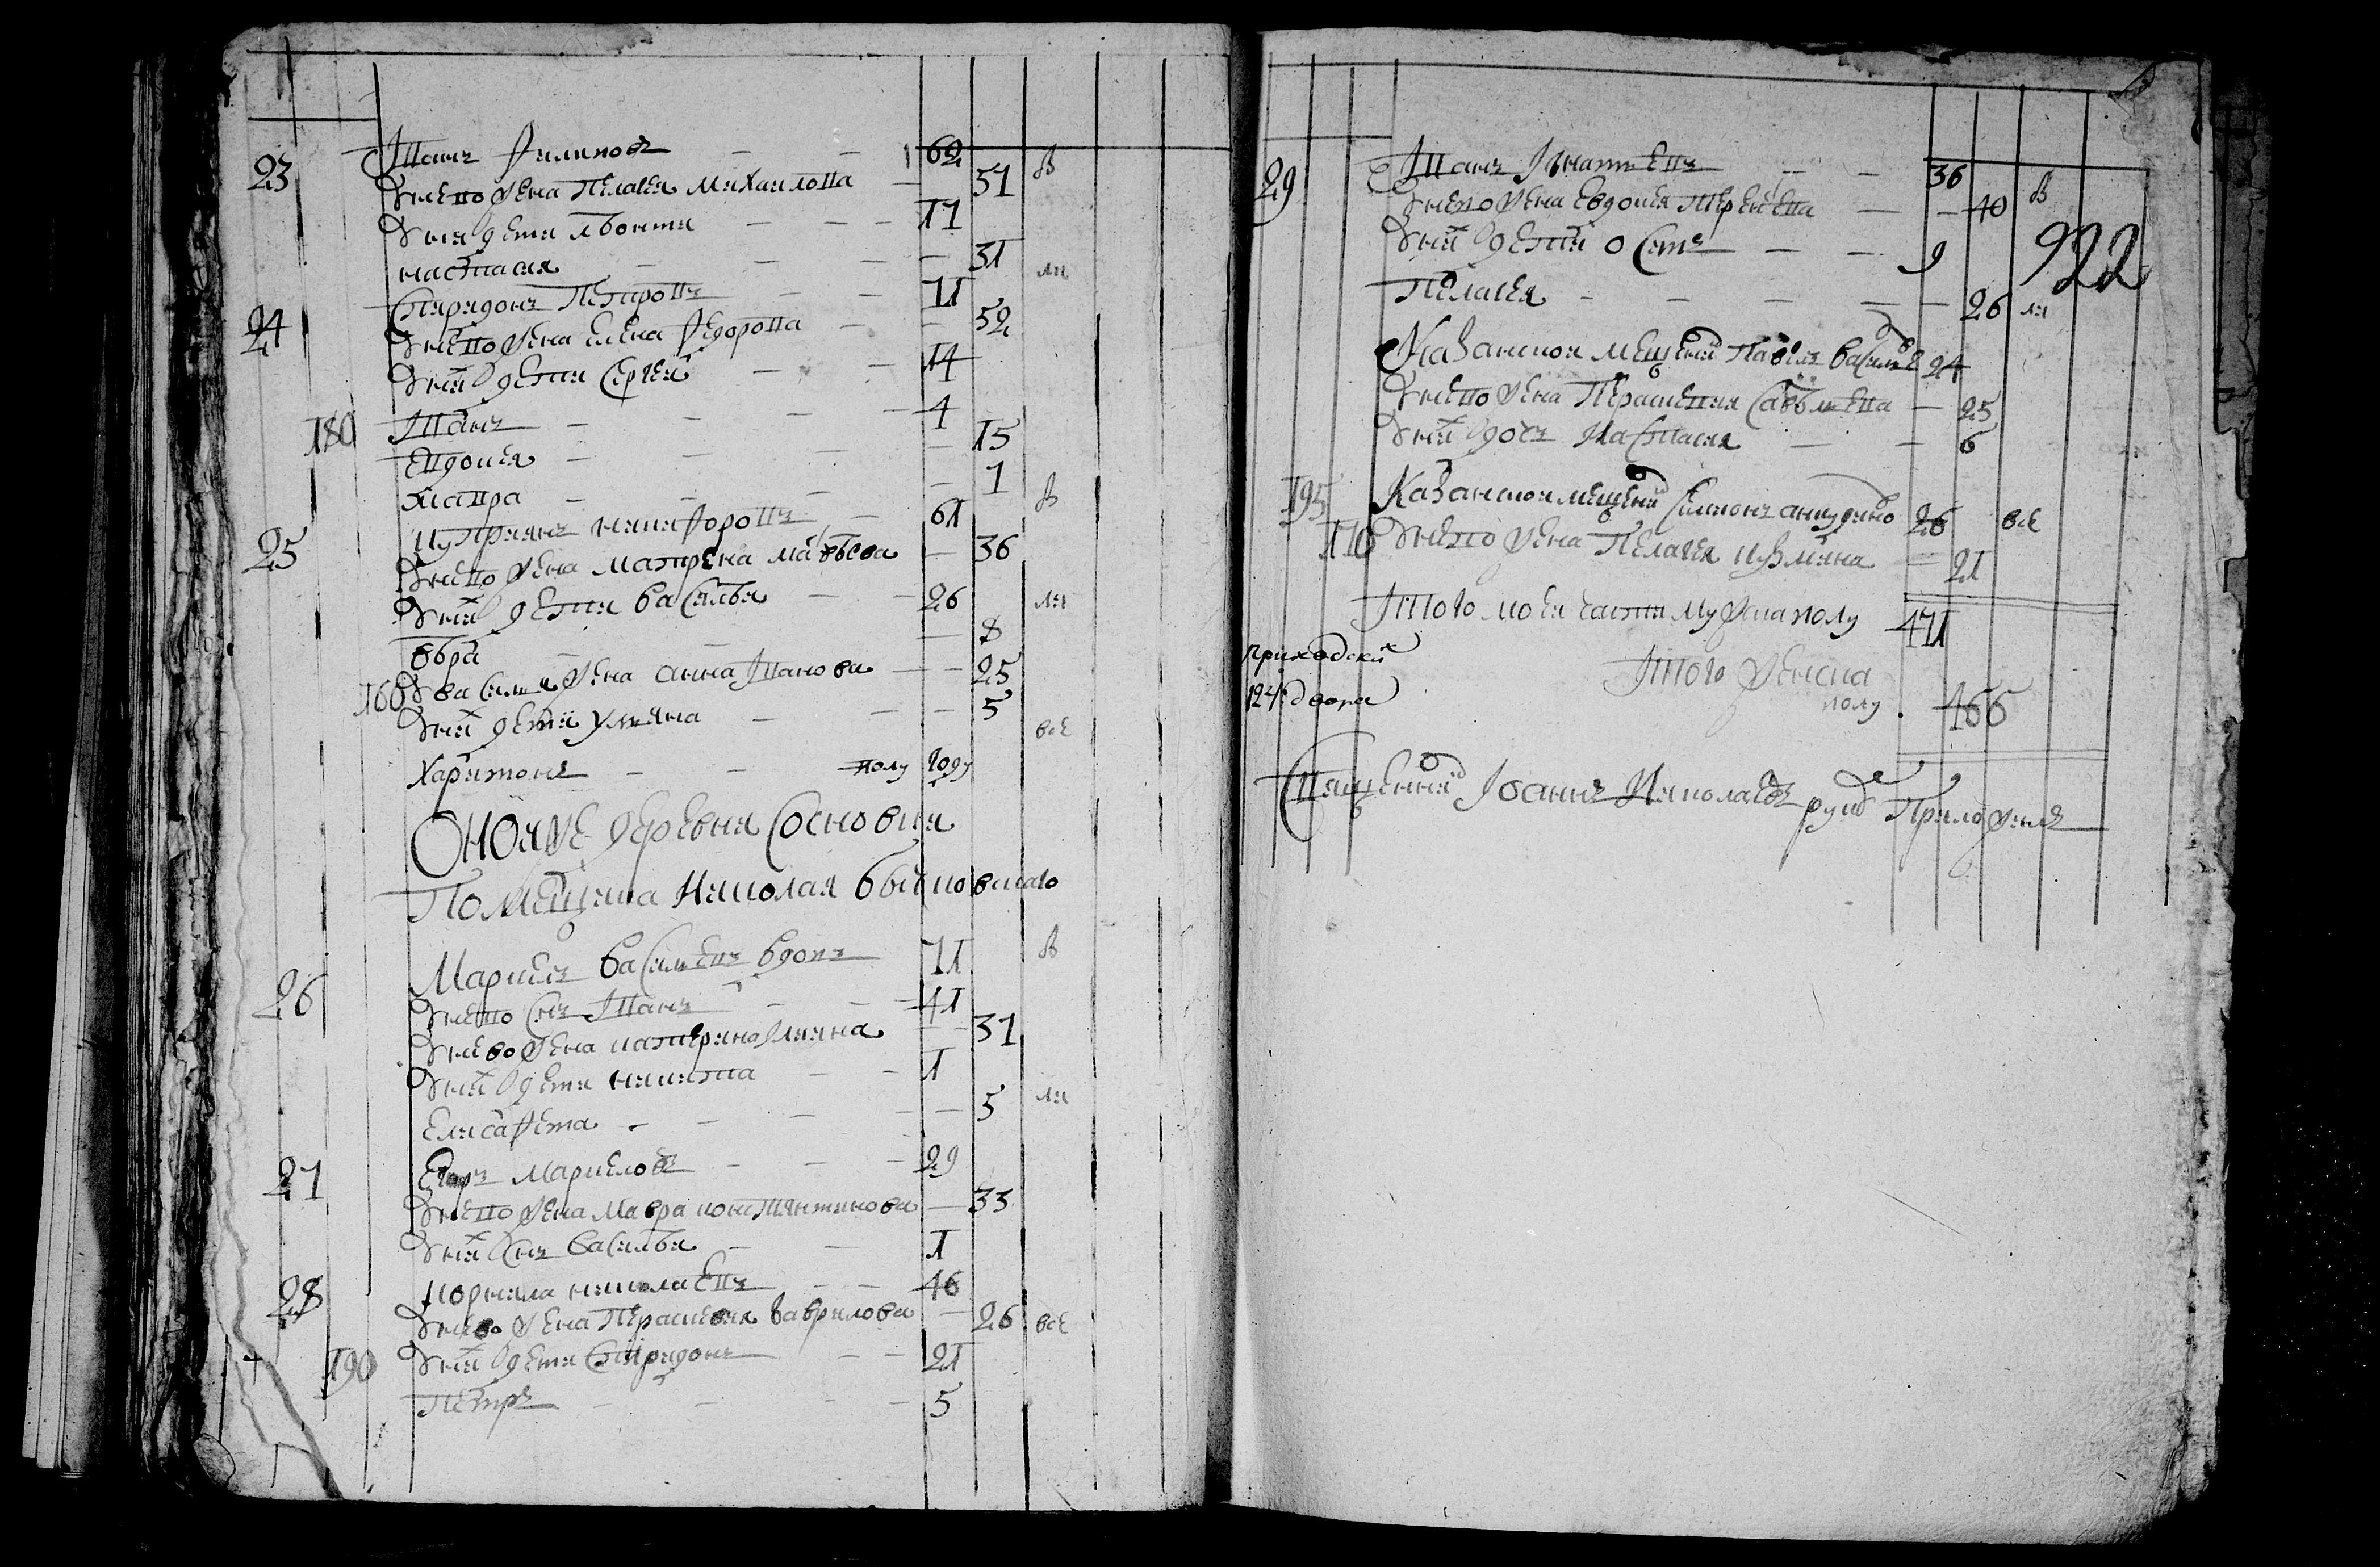 23 Иванъ Филиповъ 62
Унево жена Пелагея Михаилова 51 в
Унихъ дети Леонтеи 17
настасия 31 ли
24 Спиридонъ Петровъ 71
Унево жена Елена Федорова 52
Унихъ дети Сергеи 14
180 Иванъ 4
Евдокея 15
Мавра 1
25 Куприянъ никифоровъ 61 в
Унево жена Матрена Матвѣева 36
Унихъ дети Василеи 26 ли
Вѣра 8
160 У василья жена анна Иванова 25
Унихъ дети Ульяна 5
Харитонъ полу году все
Оной же деревни Сосновки
Помещика Николая быиковскаго
26 Маркелъ Васильевъ вдовъ 71 в
Унево Снъ Иванъ 41
Унево жена катерина 31
Унихъ дети никита 1
Елисафета 5 ли
27 Егоръ Маркеловъ 29
Унево жена Мавра константинова 33
Унихъ Снъ Василеи 1
28 корнила николаевъ 46
Унево жена Парасковья Гаврилова 26 все
190 Унихъ дети Спиридонъ 21
Петръ 5
29 Иванъ Игнатьевъ 36
Унево жена Евдокея Терентьева 40 в
Унихъ дети Осипъ 9
922
Пелагея 26 ли
Казанской мещенинъ Павелъ Васильевъ 24
Унево жена Парасковья Савельева 25
Унихъ дочь Настасия 6
195 Казанской мещенинъ Симионъ 26 все
170 Унево жена Пелагея кузмина 21
Итого моей части мужеска полу 471
приходскихъ
Итого женска
124 двора
полу 466
Священникъ Иоаннъ Николаевъ руку Приложилъ